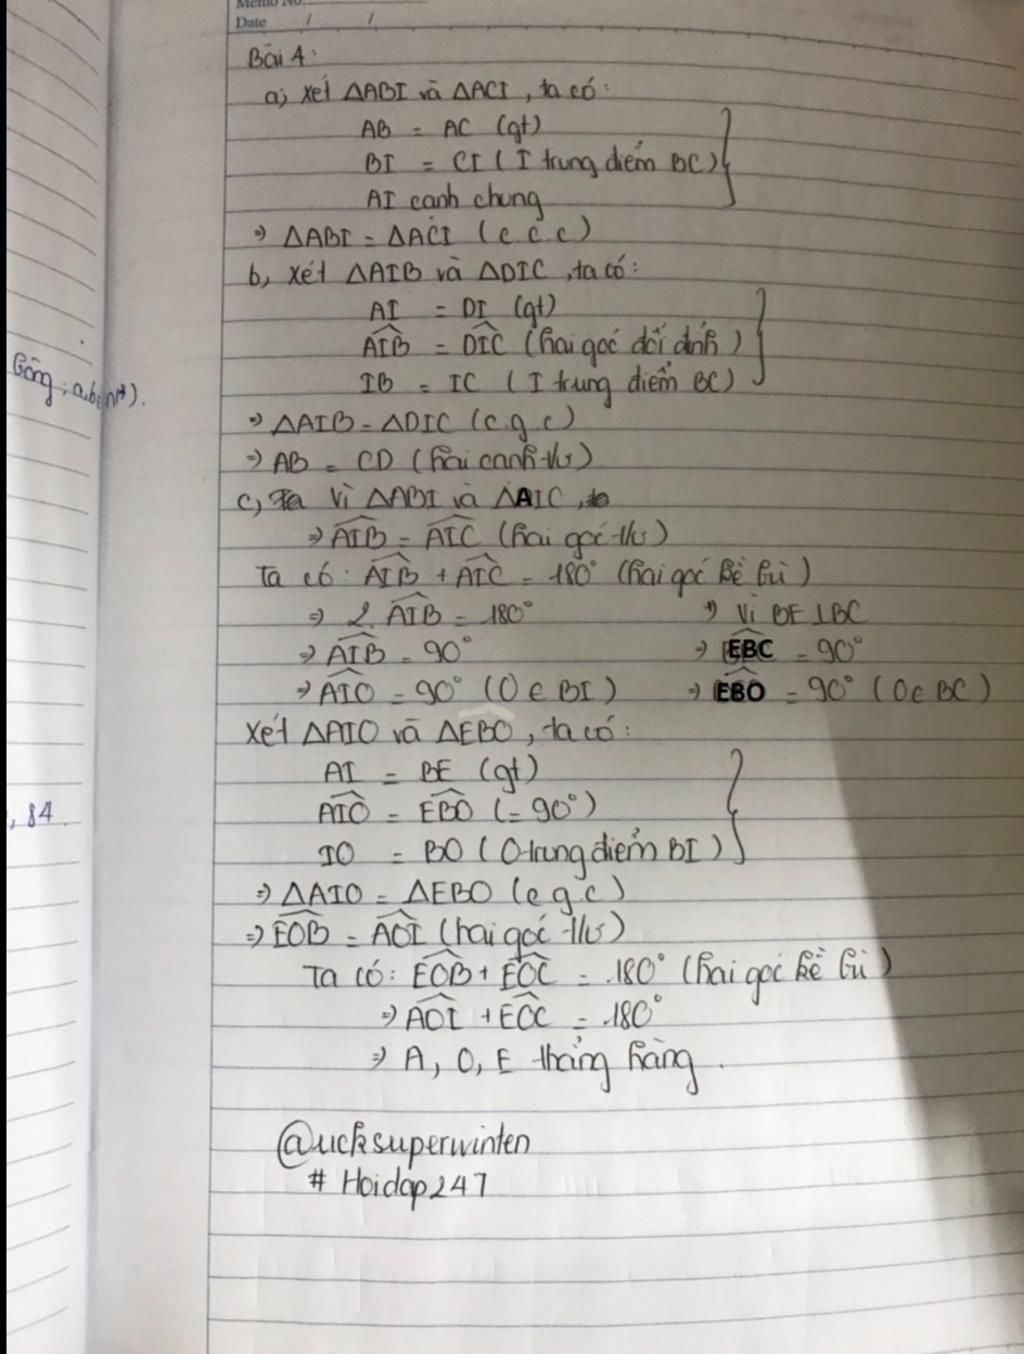 Memo No.
Date / /
Bài 4:
a, Xét ΔABI và ΔACI, ta có:
AB = AC (gt)
BI = CI (I trung điểm BC)
AI cạnh chung
=> ΔABI = ΔACI (c.c.c)
b, Xét ΔAIB và ΔDIC, ta có:
AI = DI (gt)
AIB = DIC (hai góc đối đỉnh)
IB = IC (I trung điểm BC)
=> ΔAIB = ΔDIC (c.g.c)
=> AB = CD (hai cạnh t/ư)
c, Ta Vì ΔABI và ΔAIC,
=> AIB = AIC (hai góc t/ư)
Ta có: AIB + AIC = 180° (hai góc kề bù)
=> 2.AIB = 180° => Vì BE ⊥ BC
=> AIB = 90° => EBC = 90°
=> AIO = 90° (O ∈ BI) => EBO = 90° (O ∈ BC)
Xét ΔAIO và ΔEBO, ta có:
AI = BE (gt)
AIO = EBO (= 90°)
IO = BO (O trung điểm BI)
=> ΔAIO = ΔEBO (c.g.c)
=> EOB = AOI (hai góc t/ư)
Ta có: EOB + EOC = 180° (hai góc kề bù)
=> AOI + EOC = 180°
=> A, O, E thẳng hàng.
@ucksuperwinten
# Hoidap247
, 84